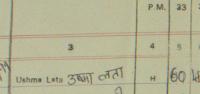 P.M. 33
3 4 5
Ushma Lata उष्मा लता H 60